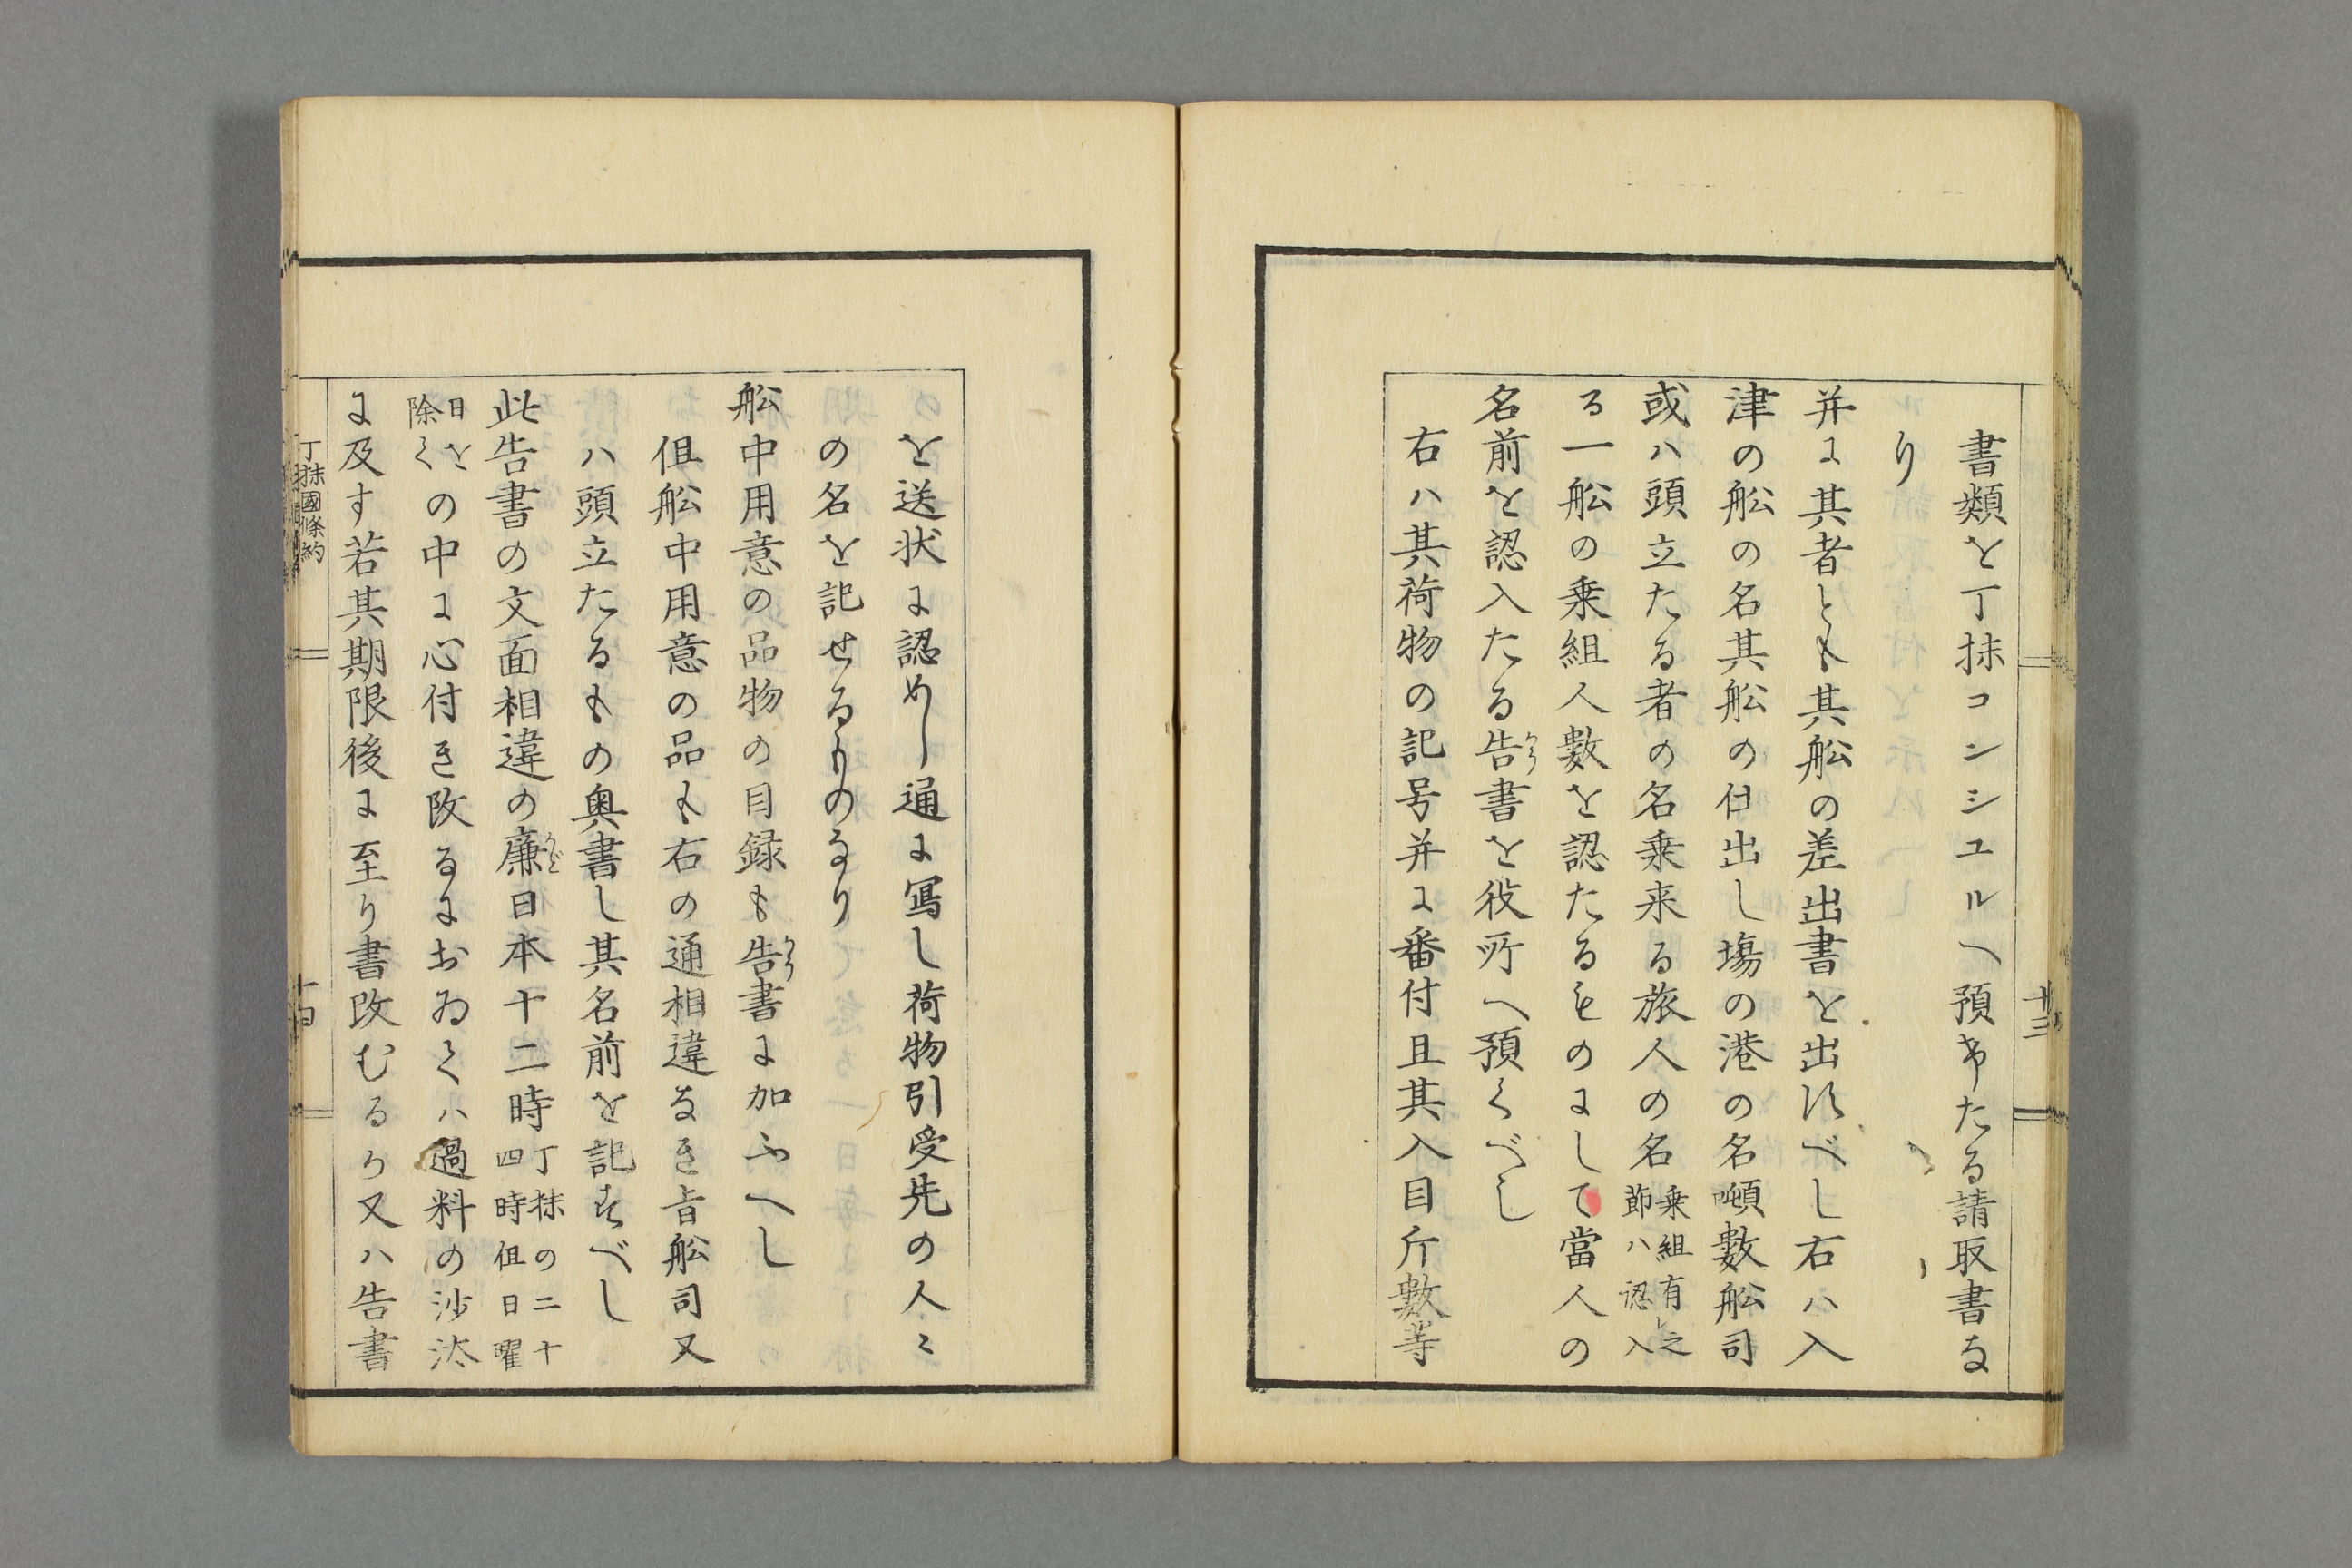 書類を丁抹コンシユルへ預けたる請取書な
り
并に其者とも其舩の差出書を出すべし右ハ入
津の舩の名其舩の仕出し塲の港の名噸數舩司
或ハ頭立たる者の名乗来る旅人の名乗組有レ之節ハ認入
る一舩の乗組人數を認たるものにして當人の
名前を認入たる告書を役所へ預くべし
右ハ其荷物の記号并に番付且其入目斤數等
十三
を送状に認めし通に寫し荷物引受先の人々
の名を記せるものなり
舩中用意の品物の目録も告書に加ふへし
但舩中用意の品も右の通相違なき㫖舩司又
ハ頭立たるもの奥書し其名前を記すべし
此告書の文面相違の廉日本十二時丁抹の二十四時但日曜
日を除くの中に心付き改るにおゐてハ過料の沙汰
に及す若其期限後に至り書改むるか又ハ告書
丁抹國條約
十四